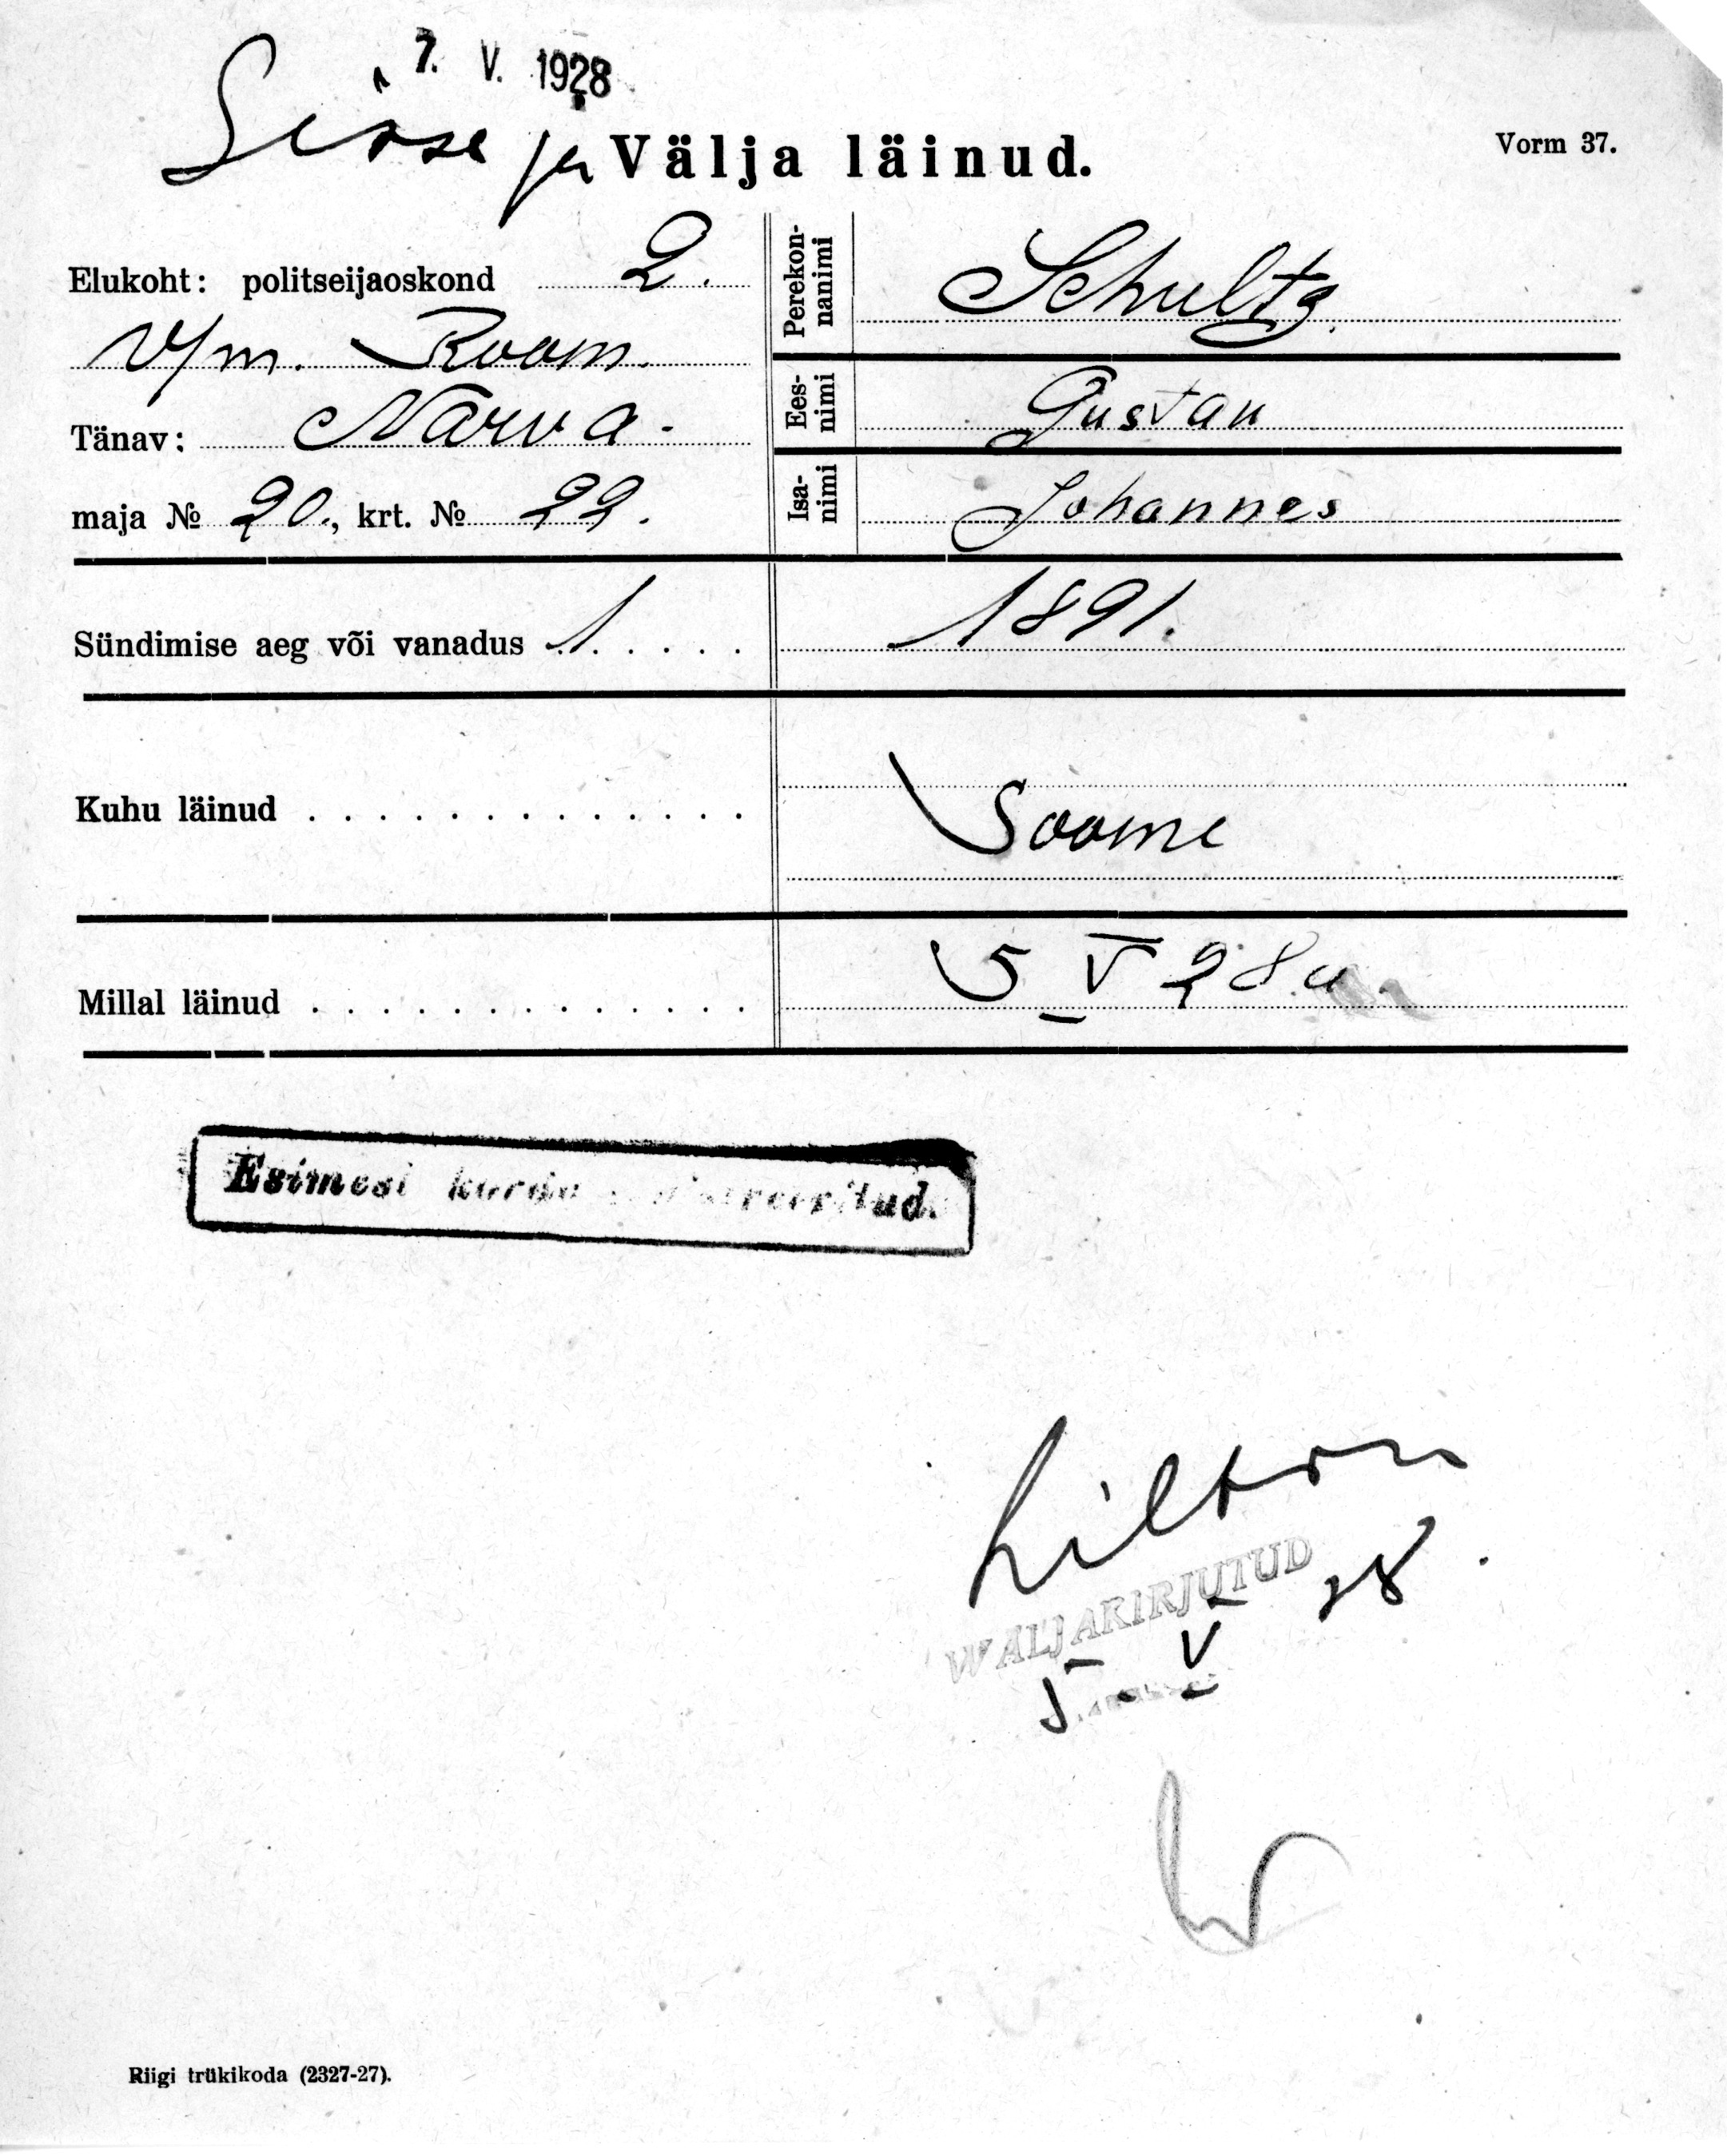 7. V. 1928
Sisse ja Välja läinud.
Vorm 37.
Elukoht: politseijaoskond 2.
V/m. Room.
Tänav: Narva.
maja № 20., krt. № 22.
Perekon-
nanimi
Schultz.
Ees-
nimi
Gustav
Isa-
nimi
Johannes
Sündimise aeg või vanadus . 1 . . . . .
1891.
Kuhu läinud . . . . . . . . . . . . . .
Soome
Millal läinud . . . . . . . . . . . . . .
5 V 28 a.
Esimesi korda registreeritud.
WÄLJAKIRJUTUD
5 - V 28.
Riigi trükikoda (2327-27).